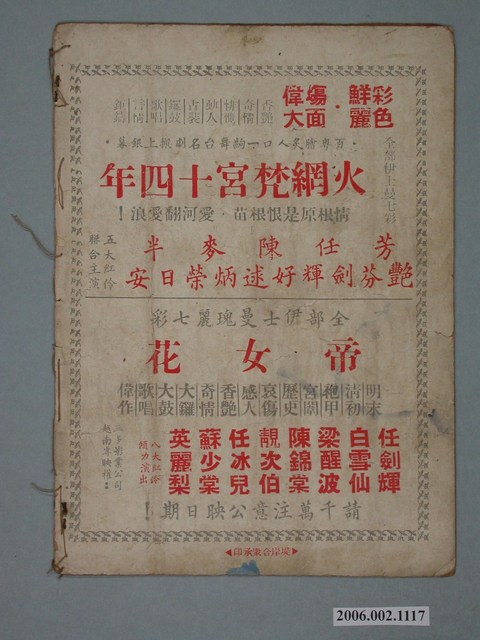 彩色鮮麗・塲面偉大
全部伊士曼七彩
香艷
悱惻
動人
古裝
鑼鼓
歌唱
言情
・百粵膾炙人口一齣舞台名劇搬上銀幕・
火網梵宮十四年
情根原是恨根苗・愛河翻愛浪！
芳艷芬
任劍輝
陳好逑
麥炳榮
半日安
五大紅伶
聯合主演
全部伊士曼瑰麗七彩
帝女花
明末清初
袍甲
宮闈
歷史
哀傷
感人
香艷
奇情
大鑼
大鼓
歌唱
偉作
任劍輝
白雪仙
梁醒波
陳錦棠
靚次伯
任冰兒
蘇少棠
英麗梨
八大紅伶
傾力演出
影業公司
越南專映權
請千萬注意公映日期！
◀堤岸合衆承印▶
2006.002.1117